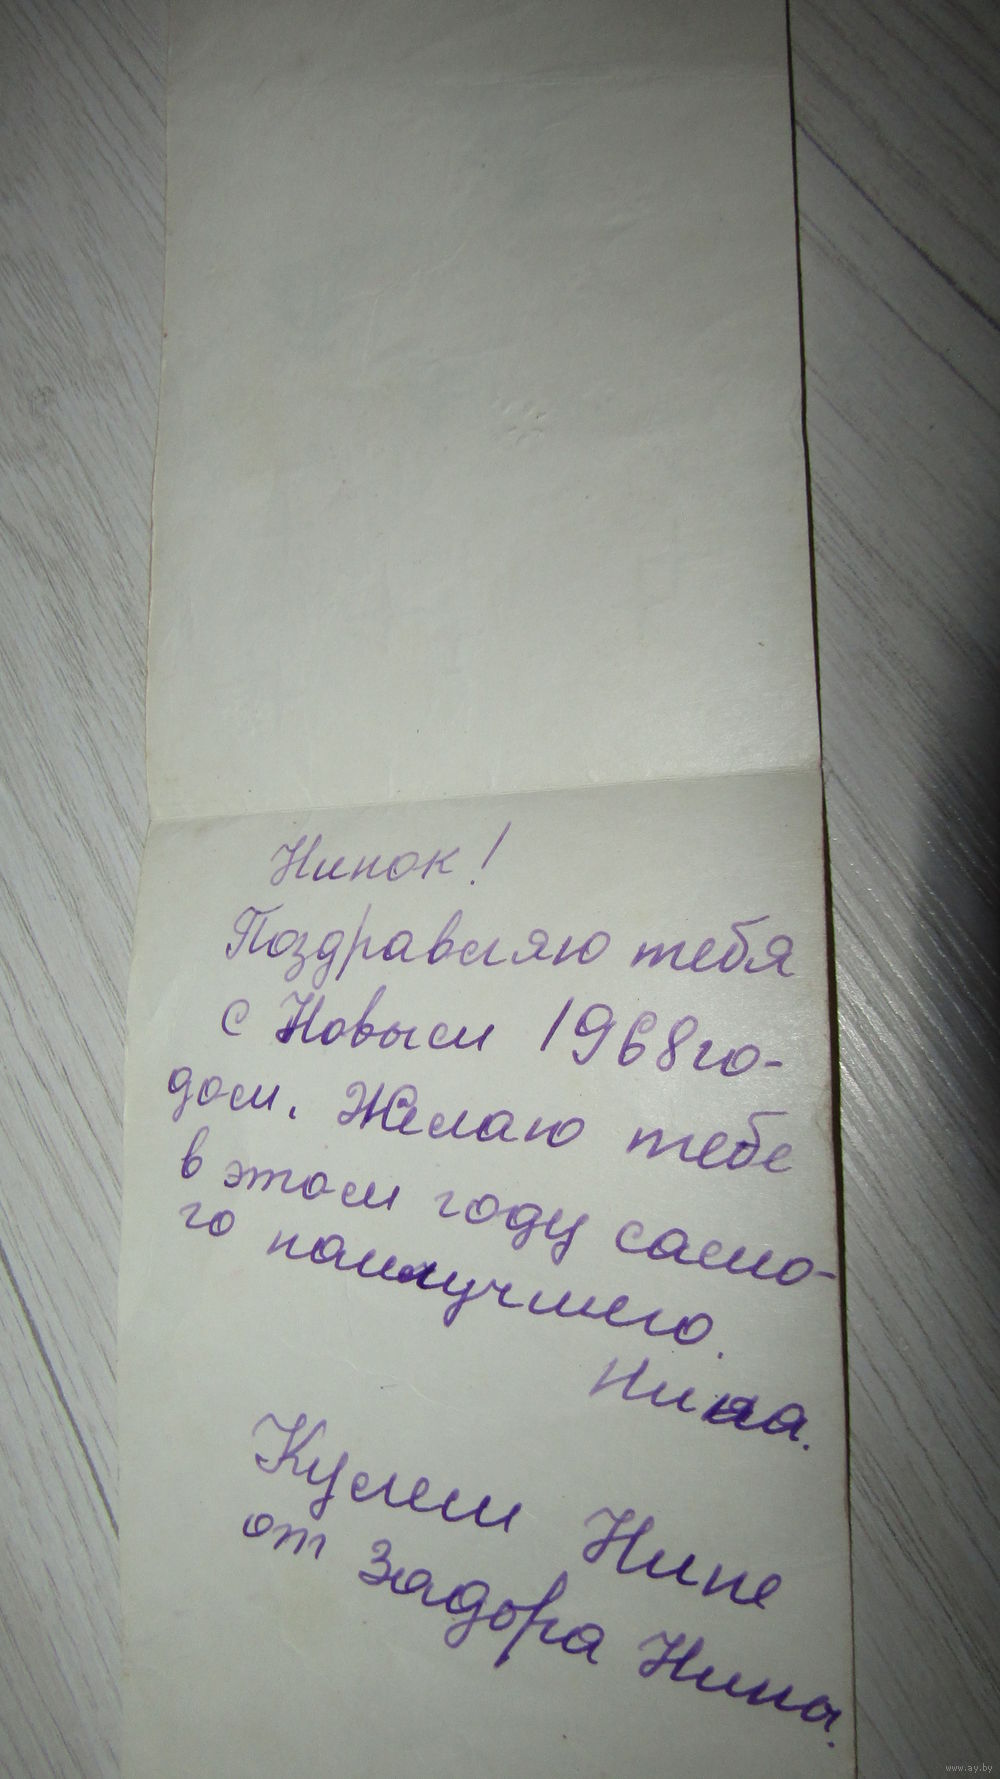 Нинок!
Поздравляю тебя
с Новым 1968 го-
дом. Желаю тебе
в этом году само-
го наилучшего.
Нина.
Кулеш Нине
от Задора Нины.
www.ay.by